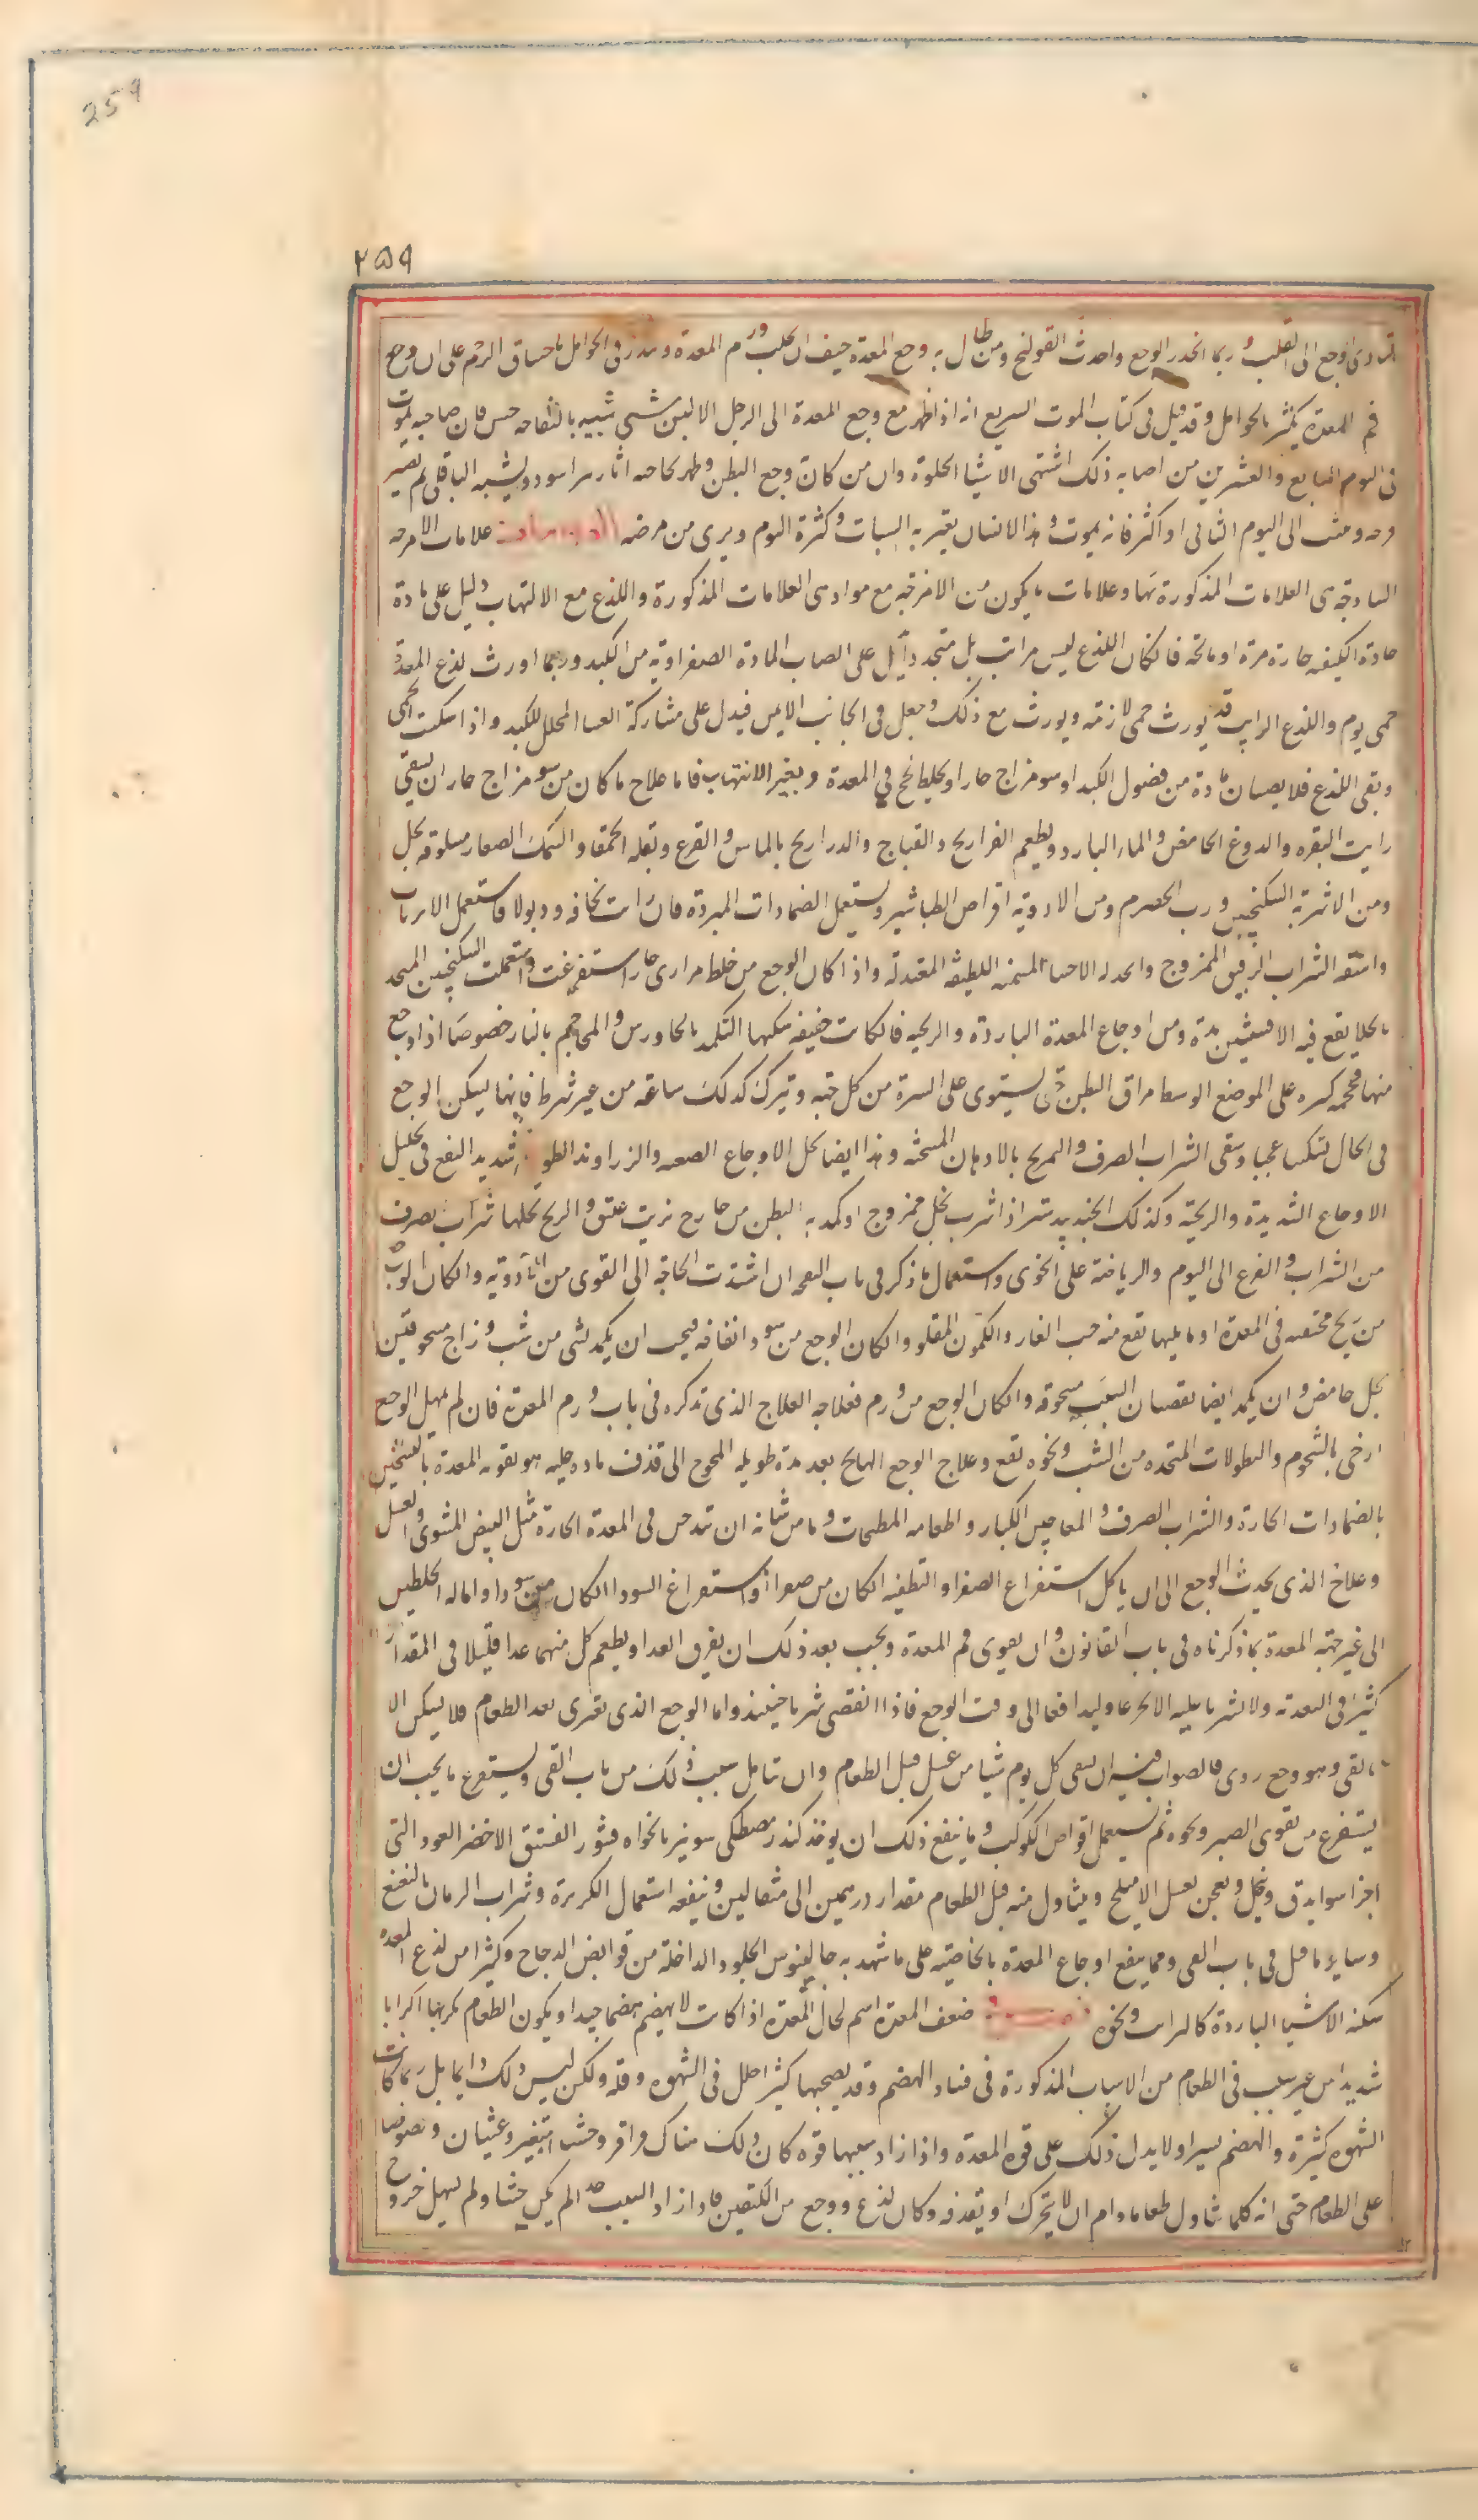 259
٢٥٩
لتادى الوجع الى القلب وربما انحدر الوجع واحدث القولنج ومن طال به وجع المعدة خيف ان يجلب ورم المعدة وينذر فى الحوامل باختناق الرحم على ان وجع
فم المعدة يكثر بالحوامل وقد قيل فى كتاب الموت السريع انه اذا ظهر مع وجع المعدة الى الرجل الا شى شبيه بالتفاحه خشن فان صاحبه يموت
فى اليوم السابع والعشرين من اصابه ذلك اشتهى الاشيا الحلوة وان من كان وجع البطن وظهر بحاجبه اثار اسود ويشبه الباقلى ثم تصير
قرحه وثبت الى اليوم الثانى او اكثر فانه يموت وهذا الانسان يعتريه السبات وكثرة النوم ويرى من مرضه علامات الامزجه
الساذجة هى العلامات المذكورة لها وعلامات ما يكون من الامزجة مع مواد هى العلامات المذكورة واللذع مع الالتهاب دليل على مادة
حادة الكيفيه حارة مرة او مالحة فان كان اللذع ليس براتب بل متجدد دل على انصباب المادة الصفراوية من الكبد وربما اورث لذع المعدة
حمى يوم واللذع الراتب قد يورث حمى لازمة ويورث مع ذلك وجعا فى الجانب الايمن فيدل على مشاركة الغشا المجلل للكبد واذا سكنت الحمى
وبقى اللذع فلانصباب مادة من فضول الكبد او سو مزاج حار او خلط لحج فى المعدة وبغير الالتهاب فاما علاج ما كان من سو مزاج حار ان يسقى
رايب البقر والدوغ الحامض والماء البارد ويطعم الفراريج والقباج والدراريج بالماش والقرع وبقلة الحمقا والسمك الصغار مسلوقة بخل
ومن الاشربة السكنجبين ورب الحصرم ومن الادوية اقراص الطباشير ويستعمل الضمادات المبردة فان رايت نحافه وذبولا فاستعمل الابزنات
واسقه الشراب الرقيق الممزوج واتخذ له الاحسا المسمنه اللطيفه المعتدلة واذا كان الوجع من خلط مرارى حار استفرغت واستعملت السكنجبين المتخذ
بالخل يقع فيه الافسنتين مدة ومن اوجاع المعدة الباردة والريحيه فان كانت خفيفة سكنها التكميد بالجاورس والمحاجم بالنار خصوصا اذا وضع
منها محجمه كبيره على الموضع الوسط من مراق البطن حتى يستوى على السرة من كل جنبه ويترك كذلك ساعه من غير شرط فانها ليسكن الوجع
فى الحال تسكينا عجيبا وسقى الشراب الصرف والتمريخ بالادهان المسخنه وهذا ايضا يحل الاوجاع الصعبه والزراوند الطويل شديد النفع فى تحليل
الاوجاع الشديدة والريحيه وكذلك الجندبيدستر اذا شرب بخل ممزوج او كمد به البطن من خارج بزيت عتيق والريح يحللها شراب بصرف
من الشراب والفزع الى النوم والرياضة على الخوى واستعمال ما ذكر فى باب النفخه ان اشتدت الحاجة الى القوى من الادوية وان كان الوجع
من ريح محتقنه فى المعدة او ما يليها نفع منه حب الغار والكمون المقلو وان كان الوجع من سودا نفاخه فيجب ان يكمد بشى من شب وزاج مسحوقين
بخل حامض وان يكمد ايضا بقضبان الشبت مسحوقه وان كان الوجع من ورم فعلاجه العلاج الذى نذكره فى باب ورم المعدة فان لم يمهل الوجع
ارخى بالشحوم والنطولات المتخذه من الشبت ونحوه نفع وعلاج الوجع الهايج بعد مدة طويله المحوج الى قذف ماده خليه هو تقويه المعدة بالتسخين
بالضمادات الحارة والشراب الصرف والمعاجين الكبار واطعامه المطجنات وما من شانه ان يتدخن فى المعدة الحارة مثل البيض المشوى والعسل
وعلاج الذى يحدث به الوجع الى ان ياكل استفراغ الصفرا والتطفيه ان كان من صفرا او استفراغ السودا ان كان من سودا واماله الخلطين
الى غير جهة المعدة بما ذكرناه فى باب القانون وان يقوى فم المعدة ويجب بعد ذلك ان يفرق الغدا ويطعم كل منهما غدا قليلا فى المقدار
كثيرا فى التغذية ولا يشرب عليه الا تجرعا وليدافعا الى وقت الوجع فاذا انقضى شربا حينئذ واما الوجع الذى يعترى بعد الطعام فلا يسكن الا
بالقى وهو وجع ردى فالصواب فيه ان يسقى كل يوم شيا من عسل قبل الطعام وان تتامل سبب ذلك من باب القى ويستفرغ ما يجب ان
يستفرغ من نقوع الصبر ونحوه ثم يستعمل اقراص الكوكب ومما ينفع ذلك ان يوخذ كندر مصطكى شونيز نانخواه قشور الفستق الاخضر العود النى
اجزا سوا يدق وينخل ويعجن بعسل الاملج ويتناول منه قبل الطعام مقدار درهمين الى مثقالين وينفعه استعمال الكزبرة وشراب الرمان بالنعنع
وساير ما قيل فى باب القى ومما ينفع اوجاع المعدة بالخاصية على ما شهد به جالينوس الجلود الداخلة من قوانص الدجاج وكثيرا من لذع المعده
يسكنه الاشيا الباردة كالرايب ونحوه ضعف المعدة اسم لحال المعدة اذا كانت لا تهضم هضما جيدا ويكون الطعام يكربها اكرابا
شديدا من غير سبب فى الطعام من الاسباب المذكورة فى فساد الهضم وقد يصحبها كثيرا خلل فى الشهوه وقله ولكن ليس ذلك دايما بل ربما كانت
الشهوه كثيرة والهضم يسيرا ولا يدل ذلك على قوة المعدة واذا زاد سببها قوه كان ذلك هناك قراقر وجشا متغير وغثيان وخصوصا
على الطعام حتى انه كلما تناول طعاما دام ان لا يتحرك او يقذفه وكان لذع ووجع بين الكتفين فاذا زاد السبب جدا لم يكن جشا ولم يسهل خروج